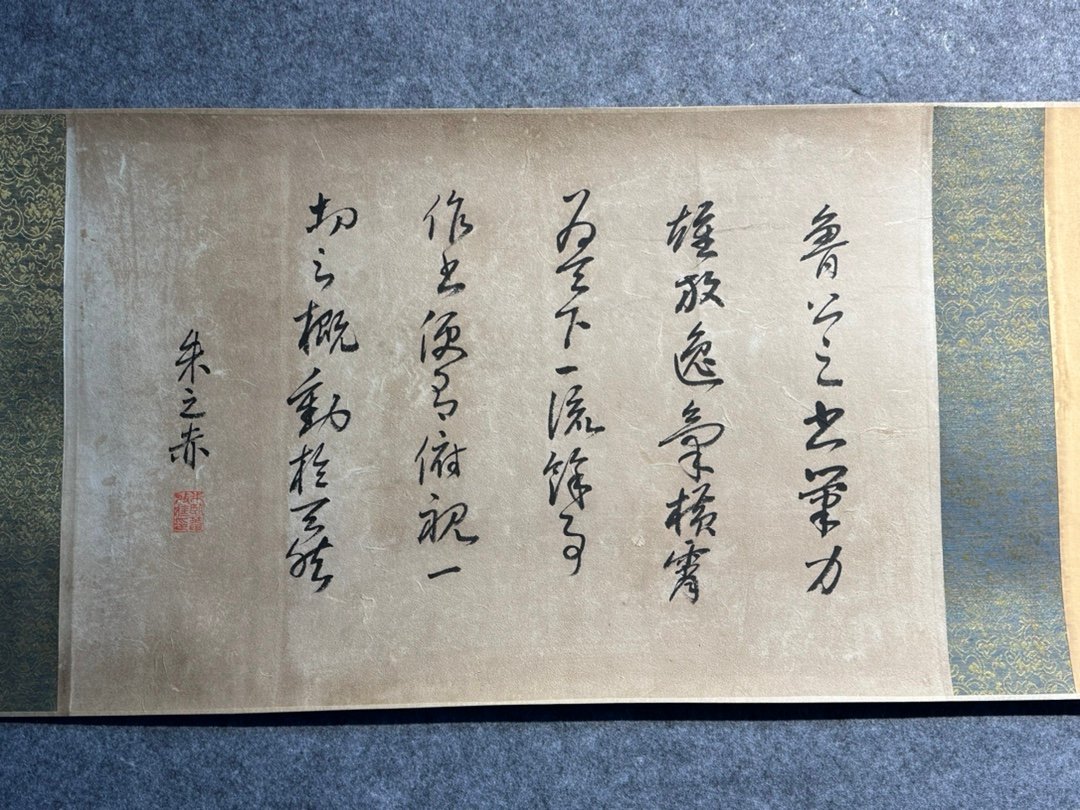 魯公之書筆力
雄放逸氣橫霄
為天下一流餘事
作書便有俯視一
切之概動於天然
朱之赤